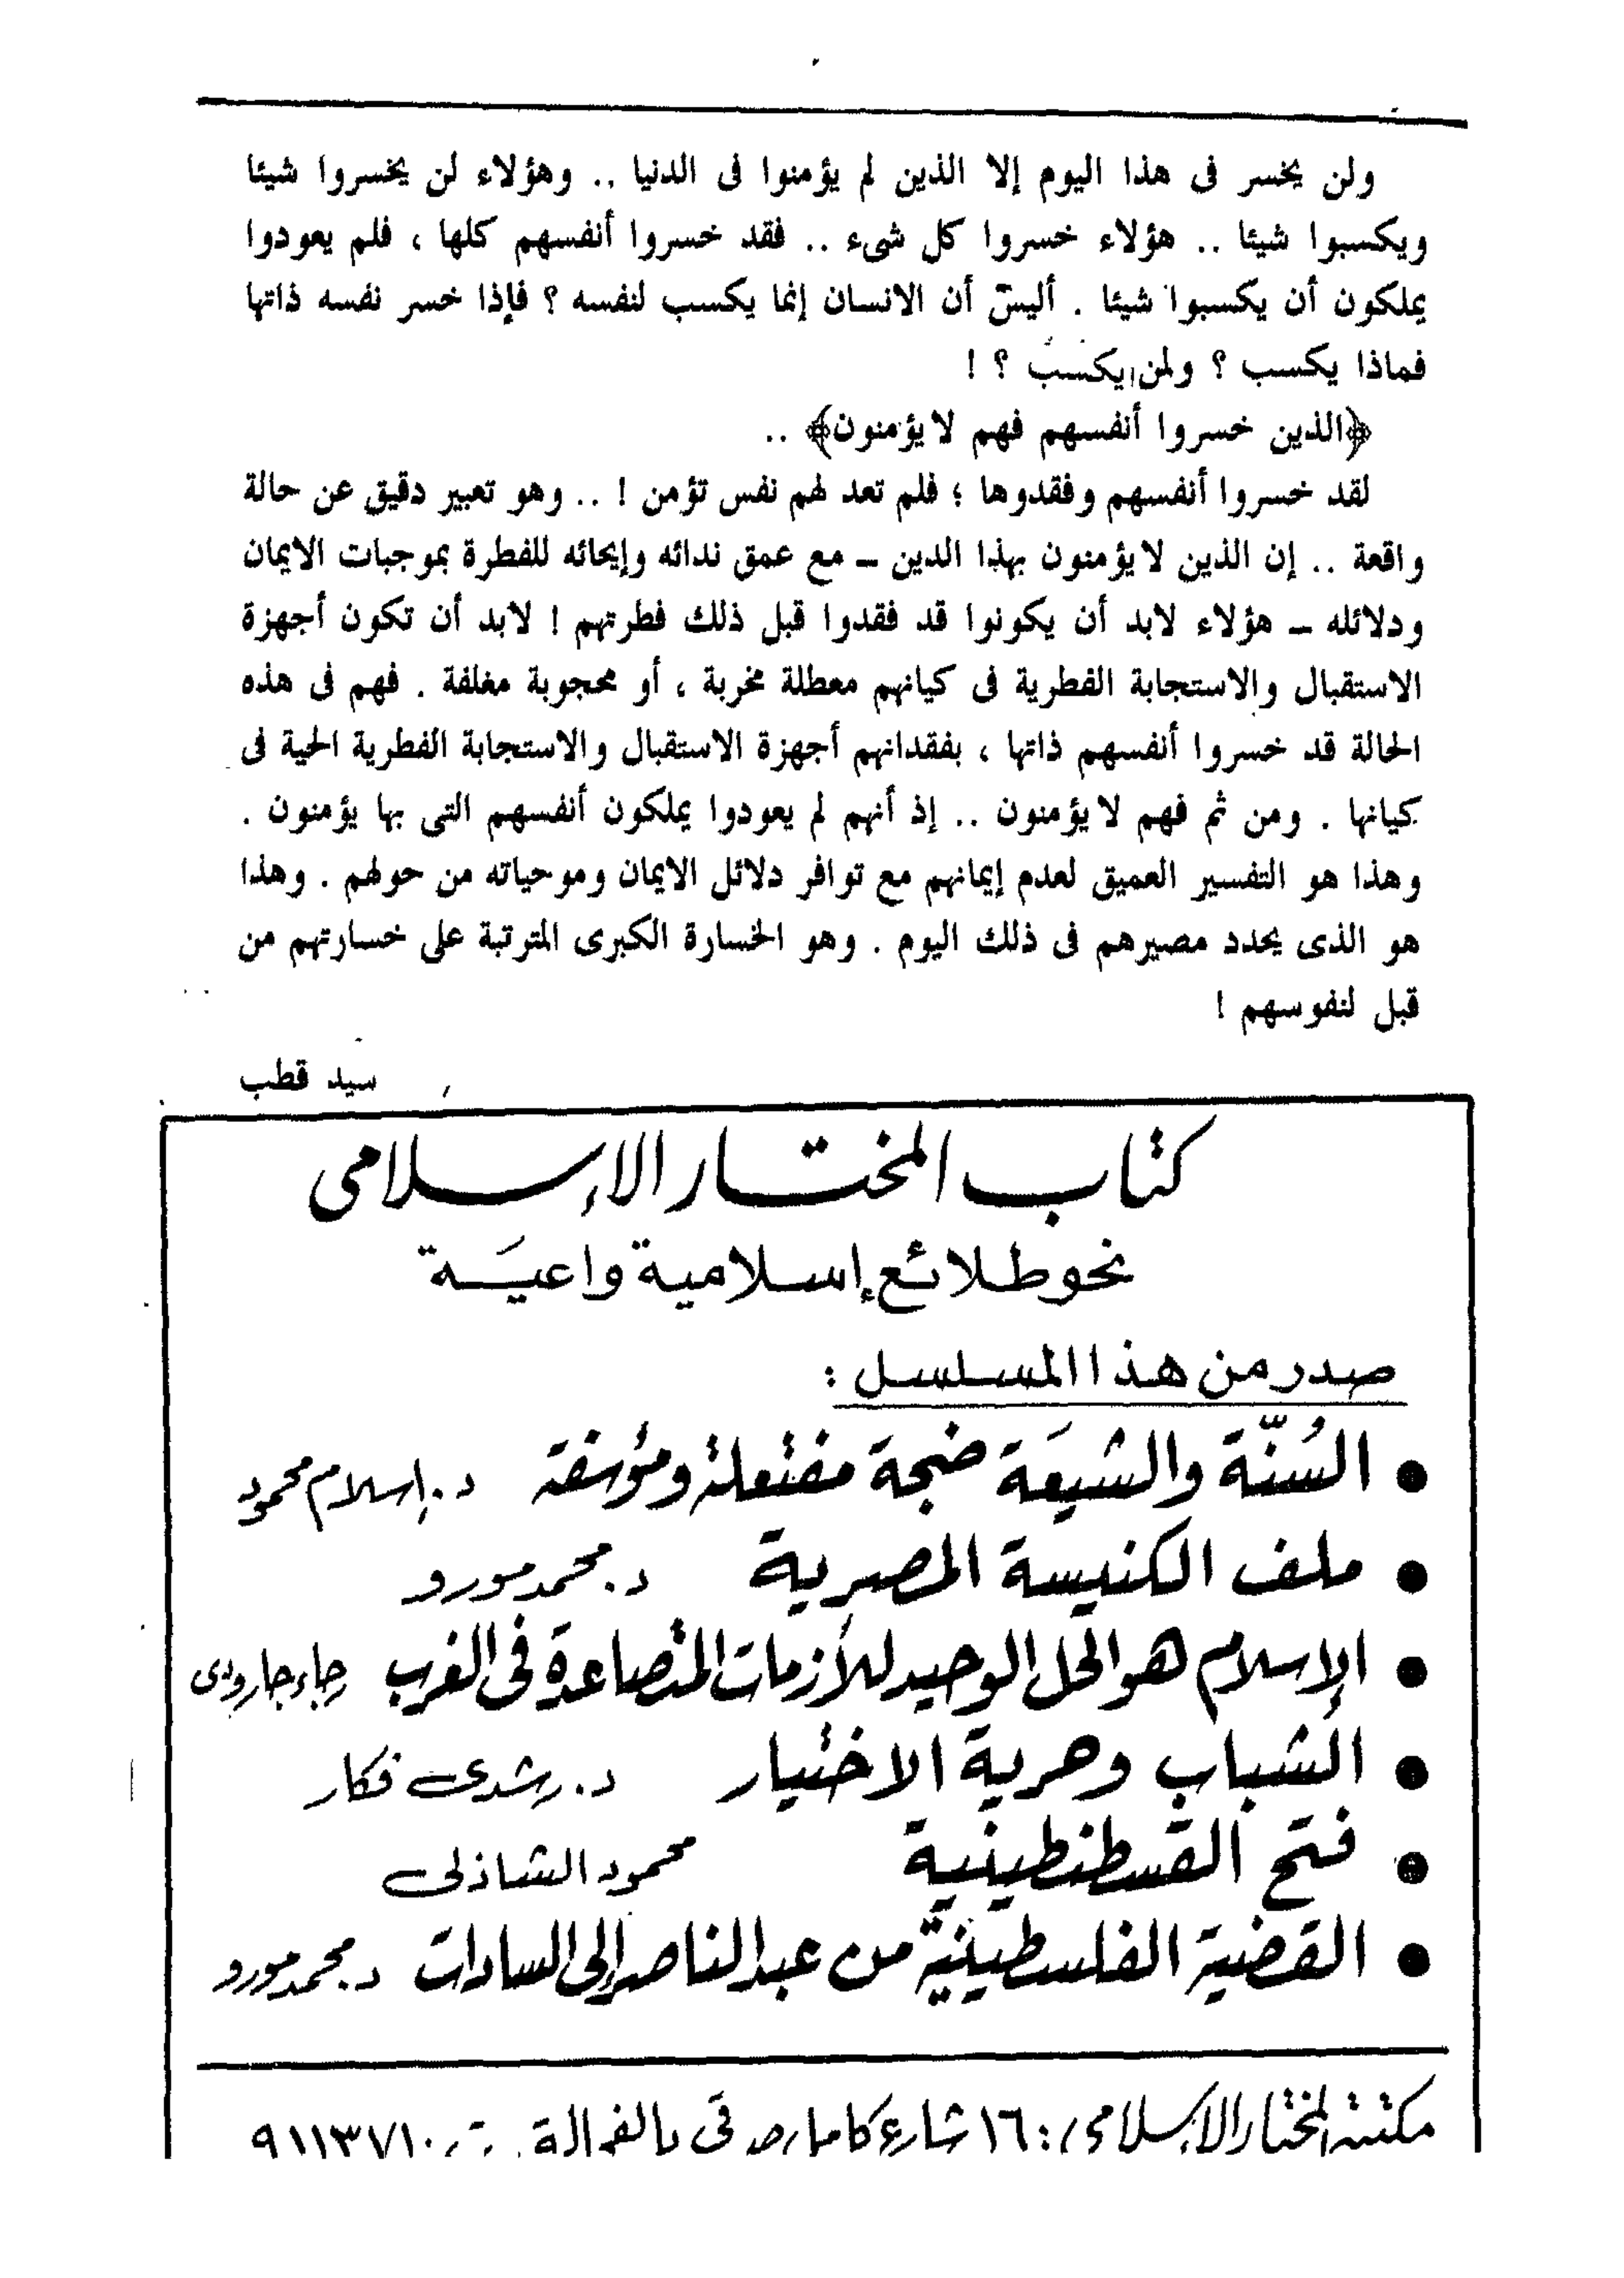 ولن يخسر فى هذا اليوم إلا الذين لم يؤمنوا فى الدنيا .. وهؤلاء لن يخسروا شيئا
ويكسبوا شيئا .. هؤلاء خسروا كل شىء .. فقد خسروا أنفسهم كلها ، فلم يعودوا
يملكون أن يكسبوا شيئا . أليس أن الانسان إنما يكسب لنفسه ؟ فإذا خسر نفسه ذاتها
فماذا يكسب ؟ ولمن يكسب ؟ !
﴿الذين خسروا أنفسهم فهم لا يؤمنون﴾ ..
لقد خسروا أنفسهم وفقدوها ؛ فلم تعد لهم نفس تؤمن ! .. وهو تعبير دقيق عن حالة
واقعة .. إن الذين لا يؤمنون بهذا الدين ــ مع عمق ندائه وإيحائه للفطرة بموجبات الايمان
ودلائله ــ هؤلاء لابد أن يكونوا قد فقدوا قبل ذلك فطرتهم ! لابد أن تكون أجهزة
الاستقبال والاستجابة الفطرية فى كيانهم معطلة مخربة ، أو محجوبة مغلفة . فهم فى هذه
الحالة قد خسروا أنفسهم ذاتها ، بفقدانهم أجهزة الاستقبال والاستجابة الفطرية الحية فى
كيانها . ومن ثم فهم لا يؤمنون .. إذ أنهم لم يعودوا يملكون أنفسهم التى بها يؤمنون .
وهذا هو التفسير العميق لعدم إيمانهم مع توافر دلائل الايمان وموحياته من حولهم . وهذا
هو الذى يحدد مصيرهم فى ذلك اليوم . وهو الخسارة الكبرى المترتبة على خسارتهم من
قبل لنفوسهم !
سيد قطب
كتاب المختار الإسلامى
نحو طلائع إسلامية واعيَة
صدر من هذا المسلسل :
● السُنّة والشيعَة ضجة مفتعلة ومؤسفة د. إسلام محمود
● ملف الكنيسة المصرية د. محمد مورو
● الإسلام هو الحل الوحيد للأزمات المتصاعدة فى الغرب رجاء جارودى
● الشباب وحرية الاختيار د. رشدى فكار
● فتح القسطنطينية محمود الشاذلى
● القضية الفلسطينية من عبد الناصر إلى السادات د. محمد مورو
مكتبة المختار الإسلامى : ١٦ شارع كامل صدقى بالفجالة ت ٩١١٣٧١٠